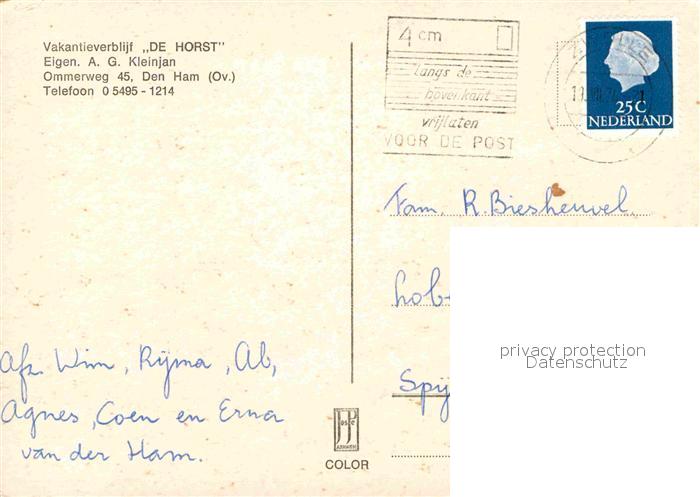 Vakantieverblijf „DE HORST"
Eigen. A. G. Kleinjan
Ommerweg 45, Den Ham (Ov.)
Telefoon 0 5495 - 1214
4 cm
langs de
bovenkant
vrijlaten
VOOR DE POST
25 C
NEDERLAND
Fam. R. Biesheuvel
privacy protection
Datenschutz
Afz. Wim, Rijma, Ab,
Agnes, Coen en Erna
van der Ham.
COLOR